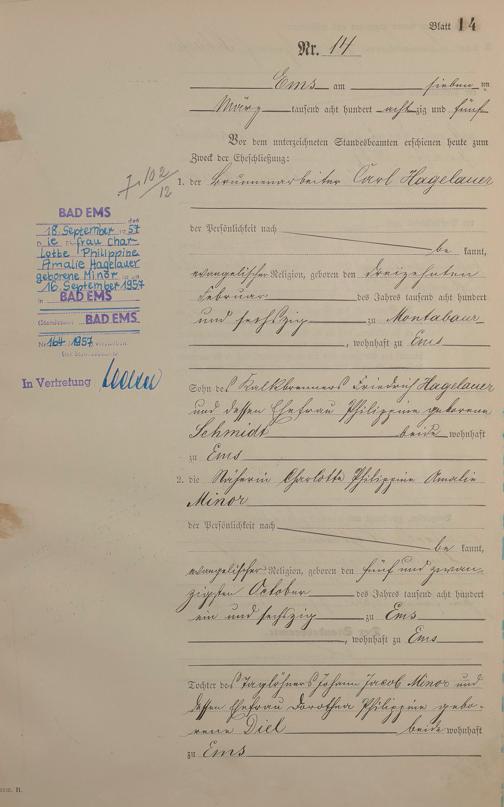 Blatt 14
Nr. 14
Ems am sieben ten
März tausend acht hundert achtzig und fünf
Vor dem unterzeichneten Standesbeamten erschienen heute zum
Zweck der Eheschließung:
1. der Brunnenarbeiter Carl Hagelauer
der Persönlichkeit nach
be kannt,
evangelischer Religion, geboren den dreizehnten
Februar des Jahres tausend acht hundert
und sechszig zu Montabaur
, wohnhaft zu Ems
Sohn des Kalkbrenners Friedrich Hagelauer
und dessen Ehefrau Philippine geborene
Schmidt beide wohnhaft
zu Ems
2. die Näherin Charlotte Philippine Amalie
Minor
der Persönlichkeit nach
be kannt,
evangelischer Religion, geboren den fünf und zwan-
zigsten October des Jahres tausend acht hundert
ein und sechszig zu Ems
, wohnhaft zu Ems
Tochter des Taglöhners Johann Jacob Minor und
dessen Ehefrau Dorothea Philippine gebo-
rene Diel beide wohnhaft
zu Ems
7.102
12
BAD EMS
18. September 1957
Die Frau Char-
lotte Philippine
Amalie Hagelauer
geborene Minor
16. September 1957
in BAD EMS
BAD EMS
Nr. 164/1957
In Vertretung